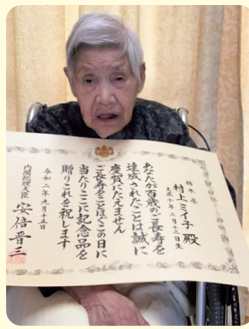 村上ミイ子 殿
大正十年
あなたが百歳のご長寿を
達成されたことは誠に
慶賀にたえません
ご長寿をことほぐこの日に
当たりここに記念品を
贈りこれを祝します
令和二年九月十五日
内閣総理大臣 安倍晋三